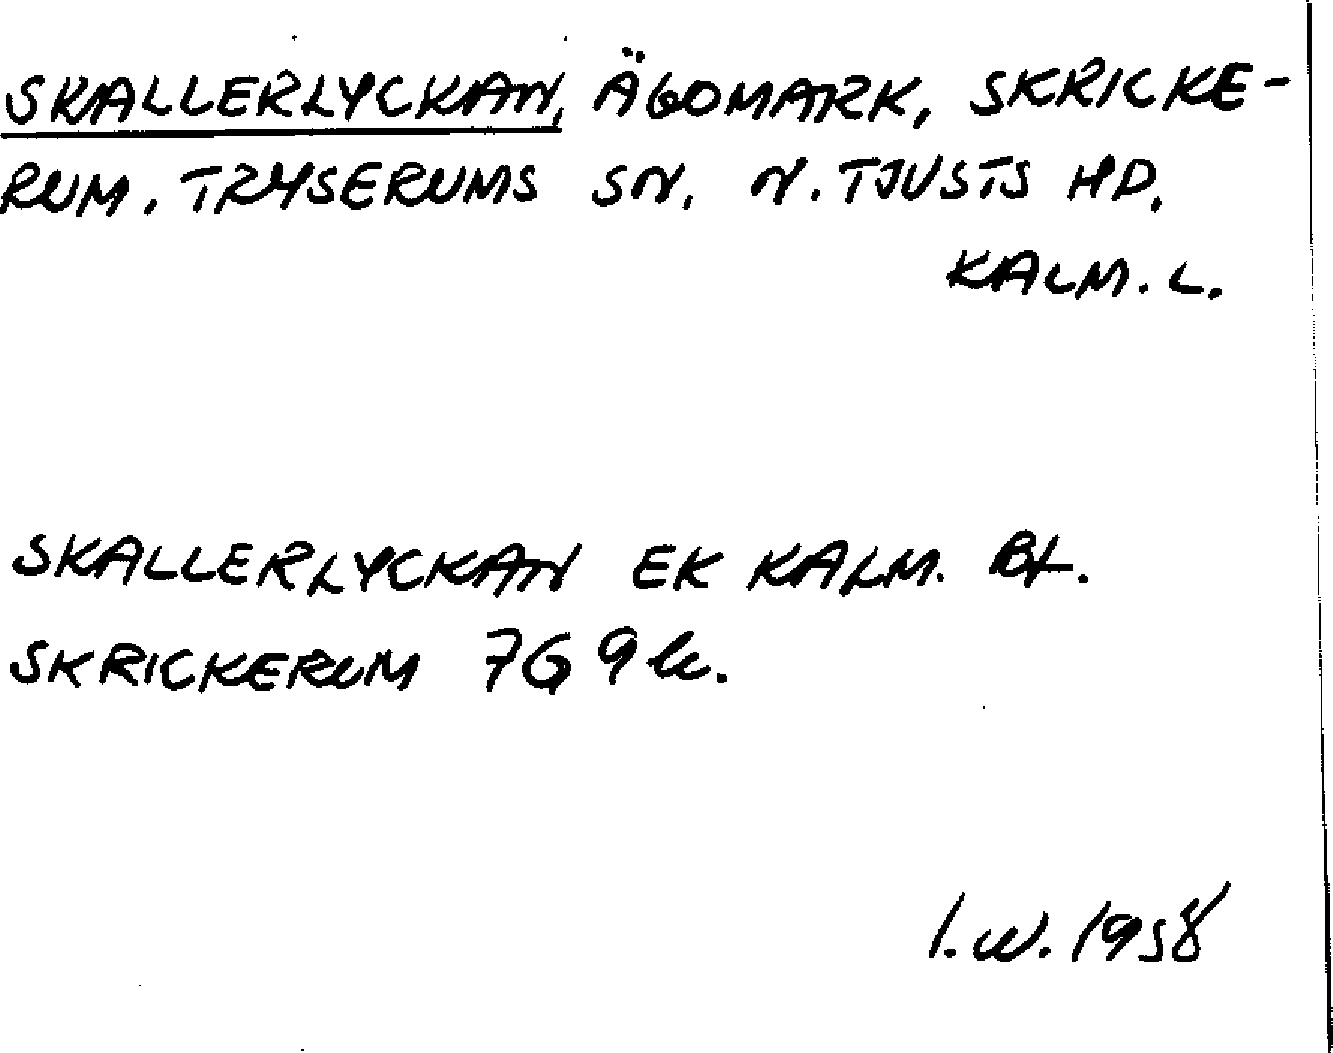 SKALLERLYCKAN, ÄGOMARK, SKRICKE-
RUM. TRYSERUMS SN. N. TJUSTS HD.
KALM. L.
SKALLERLYCKAN EK KALM. BL.
SKRICKERUM 7G 9k.
I.W. 1958